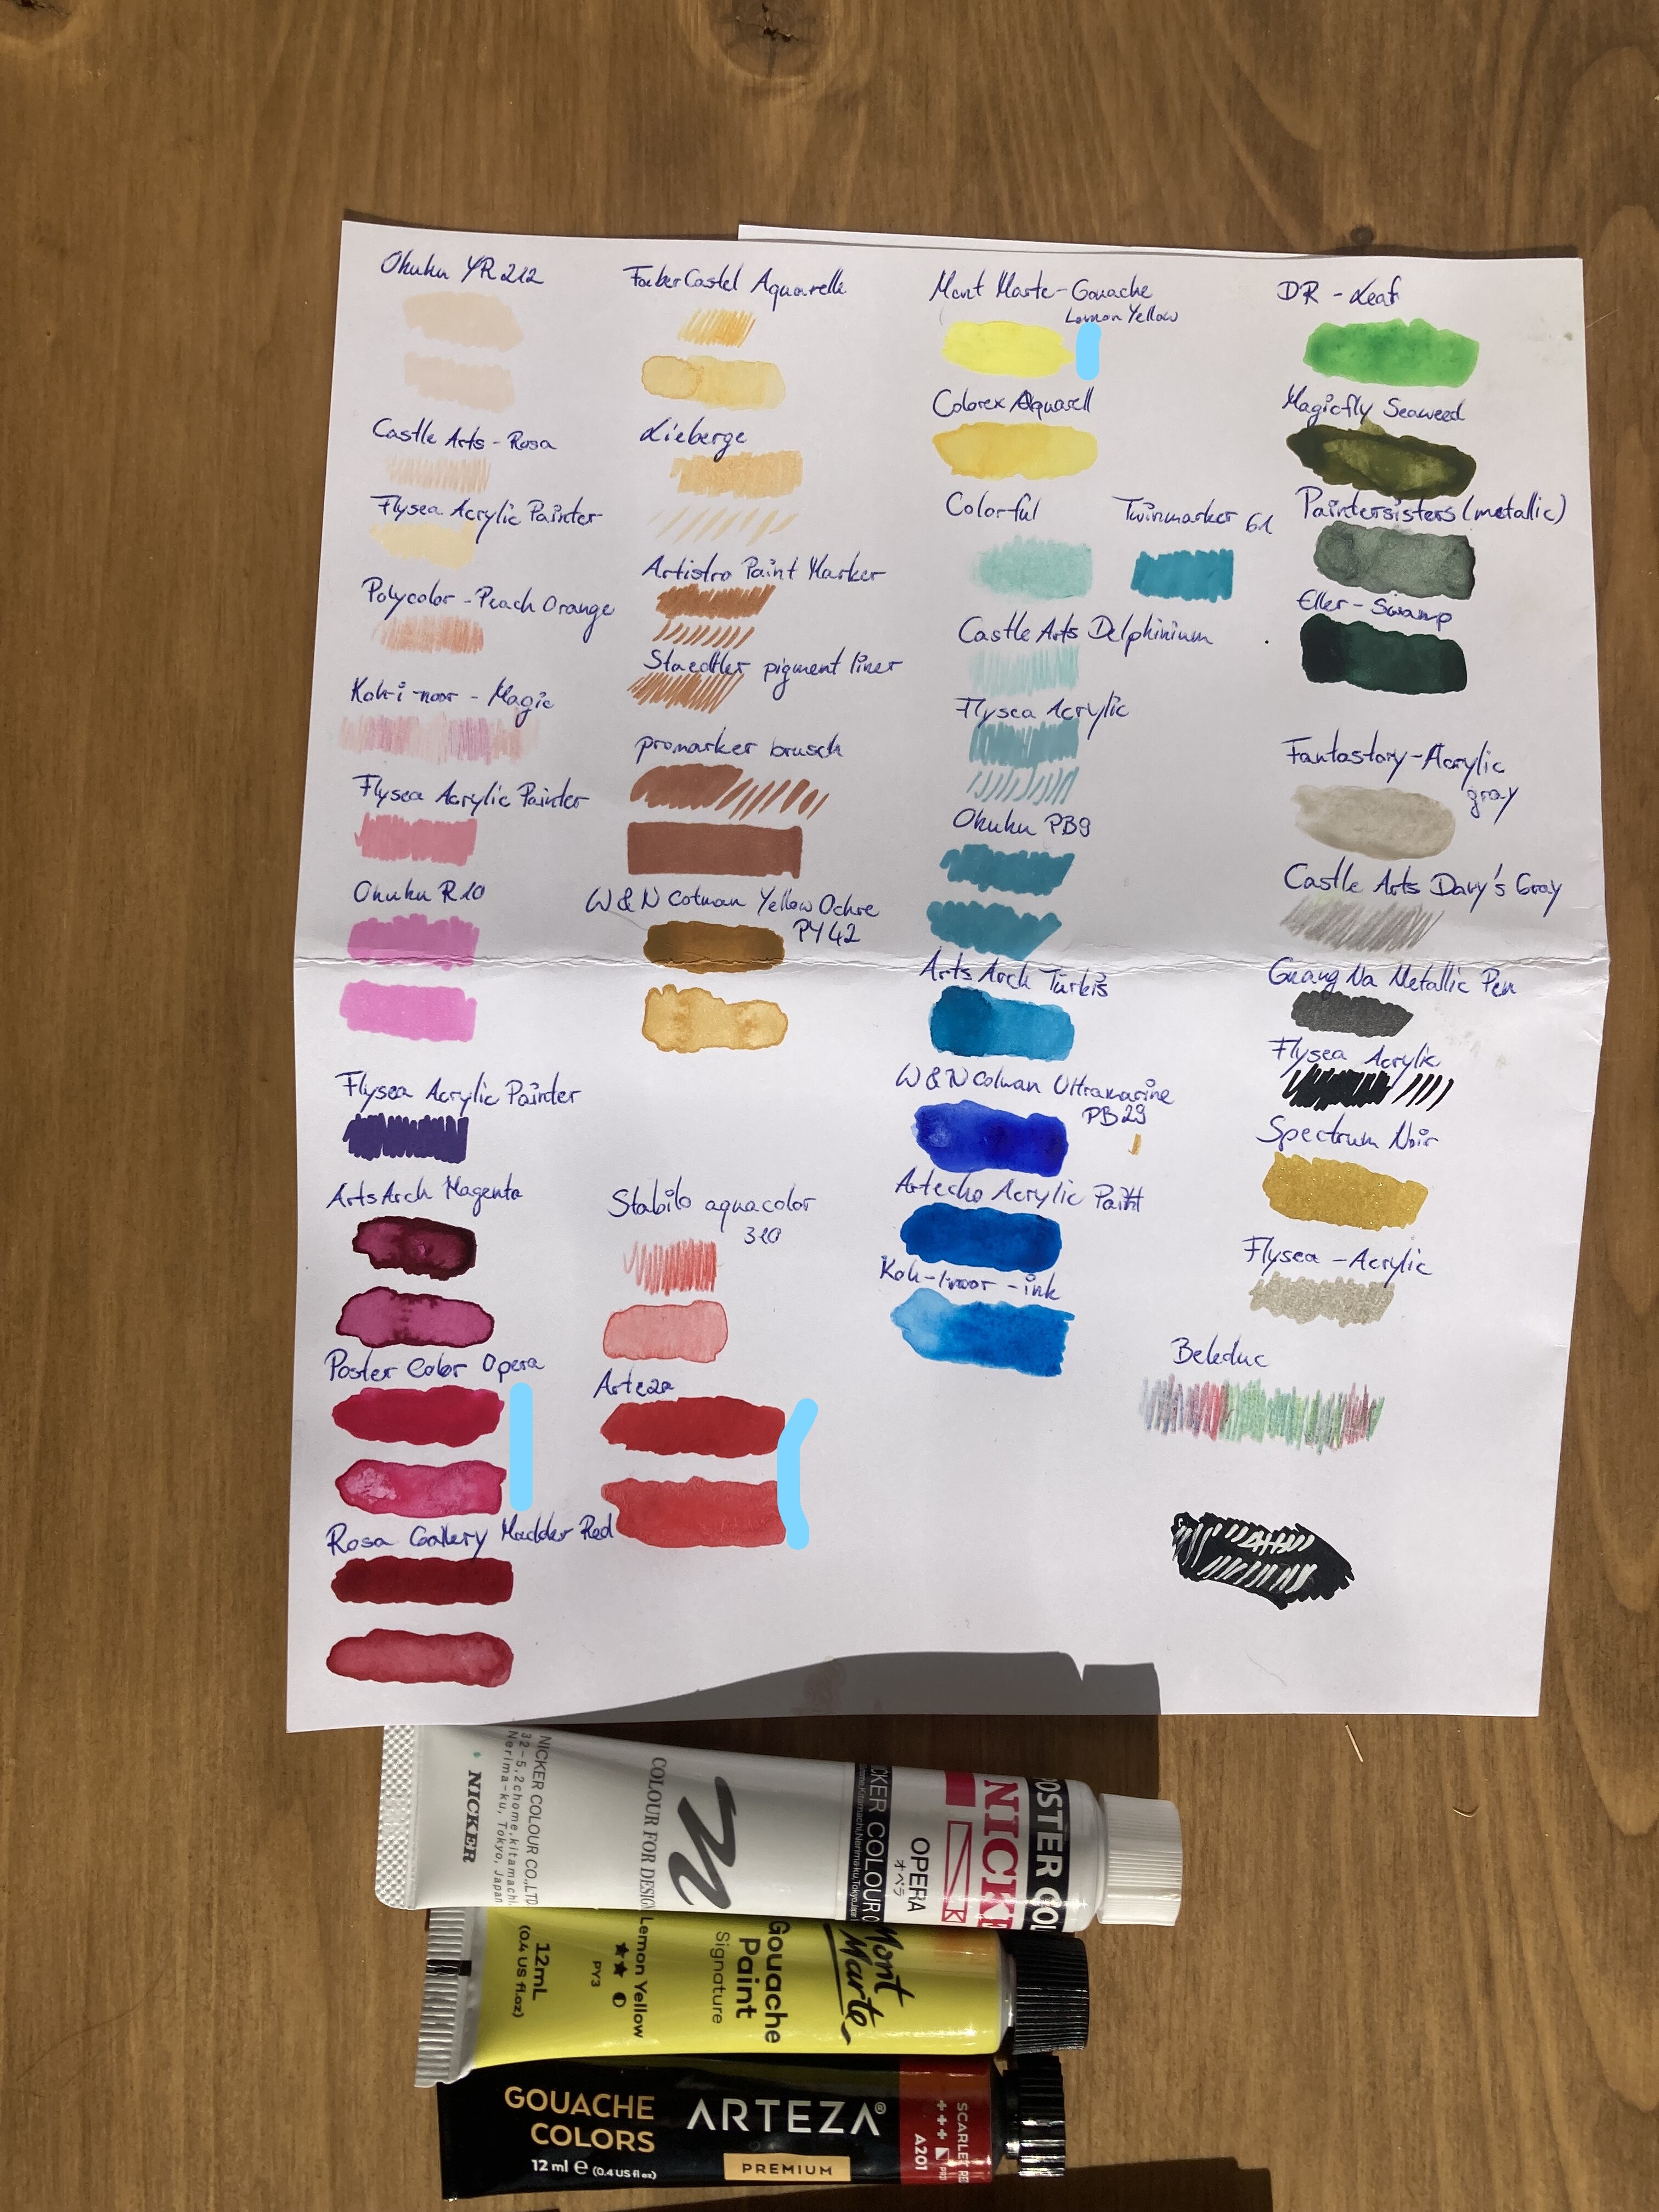 Ohuhu YR212
Castle Arts - Rosa
Flysea Acrylic Painter
Polycolor - Peach Orange
Koh-i-noor - Magic
Flysea Acrylic Painter
Ohuhu R10
Flysea Acrylic Painter
ArtsArch Magenta
Poster Color Opera
Rosa Gallery Madder Red
FaberCastel Aquarelle
Lieberge
Artistro Paint Marker
Staedtler pigment liner
promarker brusch
W&N Cotman Yellow Ochre
PY42
Stabilo aquacolor
310
Arteza
Mont Marte - Gouache
Lemon Yellow
Colorex Aquarell
Colorful
Twinmarker 61
Castle Arts Delphinium
Flysea Acrylic
Ohuhu PB9
Arts Arch Türkis
W&N Cotman Ultramarine
PB29
Artecho Acrylic Paint
Koh-i-noor - ink
DR - Leaf
Magicfly Seaweed
Paintersisters (metallic)
Eller - Swamp
Fantastory - Acrylic
gray
Castle Arts Davy's Gray
Guang Na Metallic Pen
Flysea Acrylic
Spectrum Noir
Flysea - Acrylic
Beleduc
NICKER COLOUR CO.,LTD
32-5,2chome,kitamachi,
Nerima-ku, Tokyo, Japan
NICKER
COLOUR FOR DESIGN
CKER COLOUR CO
OPERA
オペラ
NICKE
OSTER COL
Mont
Marte
Gouache
Paint
Signature
Lemon Yellow
PY3
12mL
(0.4 US fl.oz)
GOUACHE
COLORS
12 ml e (0.4 US fl oz)
ARTEZA®
PREMIUM
SCARLET RE
+++
A201